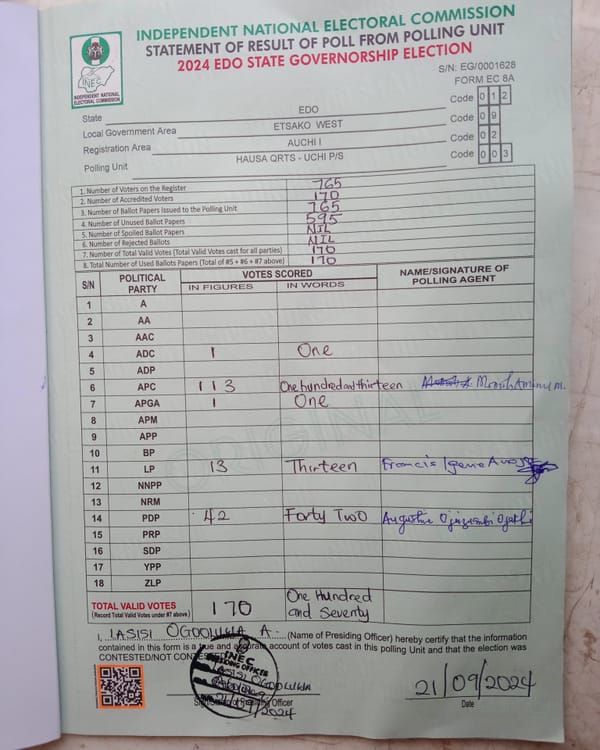 INDEPENDENT NATIONAL ELECTORAL COMMISSION
STATEMENT OF RESULT OF POLL FROM POLLING UNIT
2024 EDO STATE GOVERNORSHIP ELECTION
INEC
INDEPENDENT NATIONAL
ELECTORAL COMMISSION
S/N: EG/0001628
FORM EC 8A
State EDO Code 0 1 2
Local Government Area ETSAKO WEST Code 0 9
Registration Area AUCHI I Code 0 2
Polling Unit HAUSA QRTS - UCHI P/S Code 0 0 3
1. Number of Voters on the Register 765
2. Number of Accredited Voters 170
3. Number of Ballot Papers Issued to the Polling Unit 765
4. Number of Unused Ballot Papers 595
5. Number of Spoiled Ballot Papers NIL
6. Number of Rejected Ballots NIL
7. Number of Total Valid Votes (Total Valid Votes cast for all parties) 170
8. Total Number of Used Ballots Papers (Total of #5 + #6 + #7 above) 170
S/N POLITICAL PARTY VOTES SCORED NAME/SIGNATURE OF POLLING AGENT
IN FIGURES IN WORDS
1 A
2 AA
3 AAC
4 ADC 1 One
5 ADP
6 APC 113 One hundred and thirteen
7 APGA 1 One
8 APM
9 APP
10 BP
11 LP 13 Thirteen Francis
12 NNPP
13 NRM
14 PDP 42 Forty Two Augustine
15 PRP
16 SDP
17 YPP
18 ZLP
ORIGINAL
TOTAL VALID VOTES 170 One Hundred and Seventy
(Record Total Valid Votes under #7 above)
I, LASISI OGOOLUWA A. (Name of Presiding Officer) hereby certify that the information
contained in this form is a true and accurate account of votes cast in this polling Unit and that the election was
CONTESTED/NOT CONTESTED
INEC
PRESIDING OFFICER
LASISI OGOOLUWA
21/09/2024
Signature of Presiding Officer
21/09/2024
Date